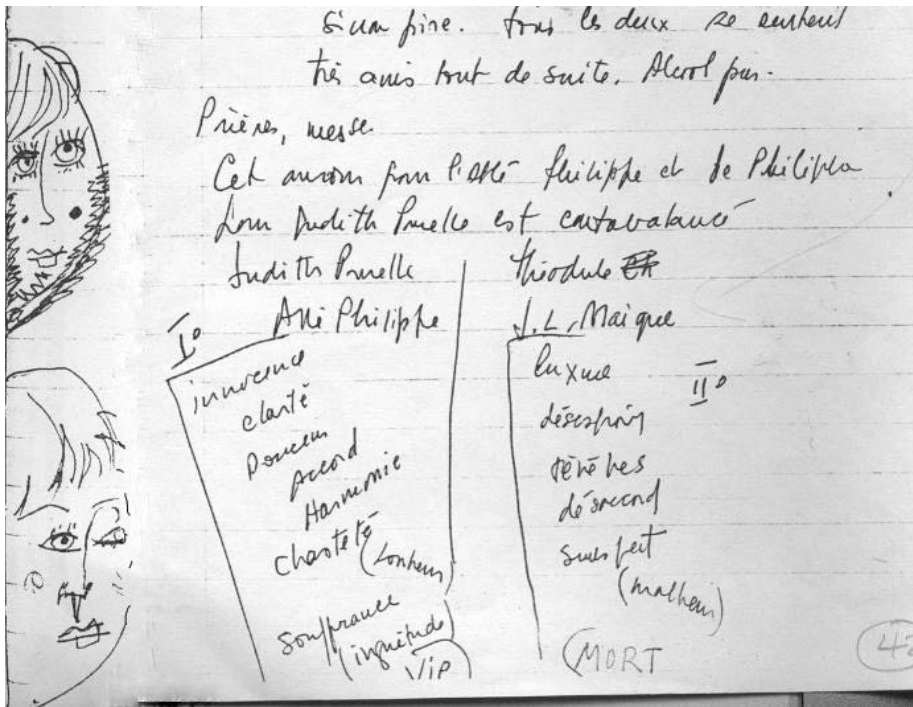 tous les deux se sentent
très amis tout de suite. Alcool pur.
Prières, messe.
Cet amour pour l'abbé Philippe et de Philippe
pour Judith Pruelle est contrebalancé
Judith Pruelle
Théodule
Abbé Philippe
J.L. Maigue
I°
innocence
clarté
Douceur
Accord
Harmonie
Chasteté
(bonheur)
Souffrance
(inquiétude)
VIE
II°
luxure
désespoir
ténèbres
désaccord
(malheur)
(MORT
42